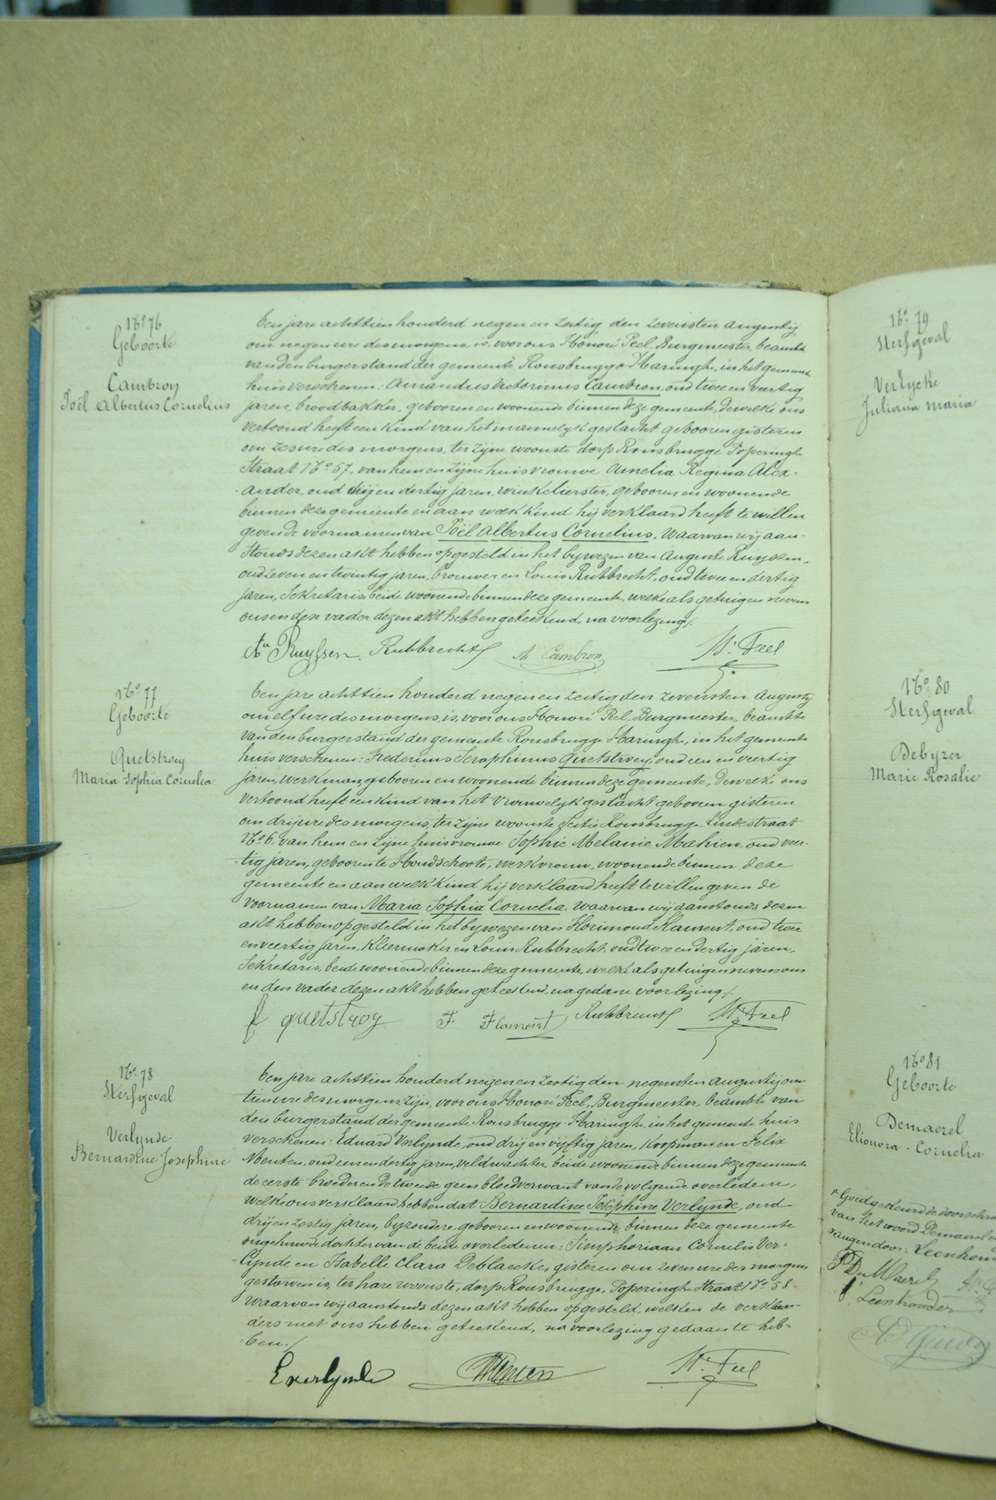 No 76
Geboorte
Cambron
Joël Albertus Cornelius
Een jare achttien honderd negen en zestig den zevensten Augusty
om negen ure des morgens, is, voor ons Honoré Peel Burgmeester, beambte
van den burgerstand der gemeente Rousbrugge-Haringhe, in het gemeente
huis verschenen: Amandus Victorinus Cambron, oud twee en veertig
jaren, broodbakker, geboren en woonende binnen deze gemeente, dewelke ons
vertoond heeft een kind van het mannelyk geslacht geboren gisteren
om zes ure des morgens, ter zyne woonste dorp Rousbrugge Poperingh
Straat No 57, van hem en zyne huisvrouwe Amelia Regina Alex-
ander, oud drij en dertig jaren, winkelierster, geboren en woonende
binnen deze gemeente en aan welk kind hij verklaard heeft te willen
geven de voornamen van Joël Albertus Cornelius. Waarvan wij aan-
stonds dezen akt hebben opgesteld in het bywezen van Auguste Ruyssen,
oud zeven en twintig jaren, brouwer en Louis Rubbrecht, oud twee en dertig
jaren, Sekretaris, beide woonende binnen deze gemeente, welke als getuigen nevens
ons en den vader dezen akt hebben geteekend, na voorlezing.
Au Ruyssen Rubbrecht A. Cambron Hré Peel
No 77
Geboorte
Quetstroey
Maria Sophia Cornelia
Een jare achttien honderd negen en zestig den zevensten Augusty
om elf ure des morgens, is, voor ons Honoré Peel Burgmeester, beambte
van den burgerstand der gemeente Rousbrugge Haringhe, in het gemeente
huis verschenen: Frederinus Seraphinus Quetstroey, oud een en veertig
jaren, werkman, geboren en woonende binnen deze gemeente, dewelke ons
vertoond heeft een kind van het vrouwelyk geslacht geboren gisteren
om drij ure des morgens, ter zyne woonste sectie Rousbrugge Lindestraat
No 6, van hem en zyne huisvrouwe Sophie Melanie Mahieu, oud veer-
tig jaren, geboren te Hondschoote, werkvrouw, woonende binnen deze
gemeente en aan welk kind hij verklaard heeft te willen geven de
voornamen van Maria Sophia Cornelia. Waarvan wij aanstonds dezen
akt hebben opgesteld in het bywezen van Florimond Flament, oud twee
en veertig jaren, Kleermaker en Louis Rubbrecht, oud twee en dertig jaren,
Sekretaris, beide woonende binnen deze gemeente, welke als getuigen nevens ons
en den vader dezen akt hebben geteekend, na gedane voorlezing.
f quetstroy F. Flament Rubbrecht Hré Peel
No 78
Sterfgeval
Verlynde
Bernardine Josephine
Een jare achttien honderd negen en zestig den negensten Augusty om
tien ure des morgens, zyn, voor ons Honoré Peel, Burgmeester, beambte van
den burgerstand der gemeente Rousbrugge Haringhe, in het gemeente huis
verschenen: Eduard Verlynde, oud drij en vyftig jaren, Koopman en Felix
oud een en dertig jaren, veldwachter, beide woonende binnen deze gemeente
de eerste broeder en de tweede geen bloedverwant van de volgende overledene,
welke ons verklaard hebben dat Bernardine Josephine Verlynde, oud
drij en zestig jaren, byzondere, geboren en woonende binnen deze gemeente
ongehuwde dochter van de beide overledenen: Simphoriaan Cornelis Ver-
lynde en Isabelle Clara Deblaecke, gisteren om zeven ure des morgens
gestorven is, ter hare woonste, dorp Rousbrugge, Poperingh Straat No 58.
waarvan wij aanstonds dezen akt hebben opgesteld, welken de verklaar-
ders met ons hebben geteekend, na voorlezing gedaan te heb-
ben.
E verlynde Hré Peel
No 79
Sterfgeval
Verlycke
Juliana Maria
No 80
Sterfgeval
Debyzer
Marie Rosalie
No 81
Geboorte
Demaerel
Elionora - Cornelia
Goedgekeurd de doorschra
van het woord
vangen door: Leenknecht